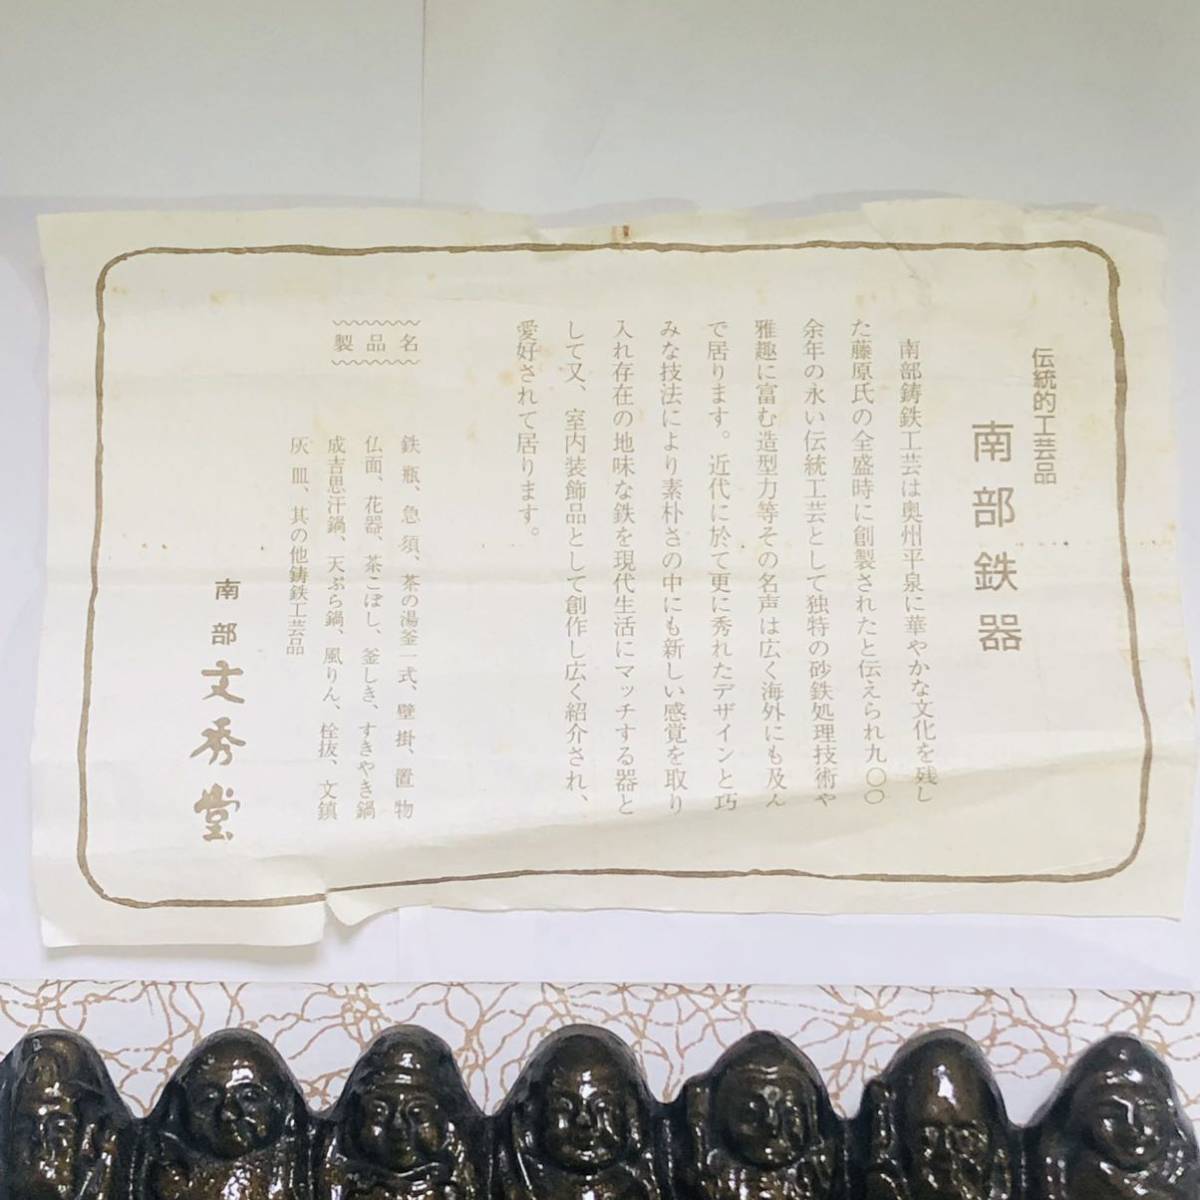 伝統的工芸品
南部鉄器
南部鋳鉄工芸は奥州平泉に華やかな文化を残し
た藤原氏の全盛時に創製されたと伝えられ九〇〇
余年の永い伝統工芸として独特の砂鉄処理技術や
雅趣に富む造型力等その名声は広く海外にも及ん
で居ります。近代に於て更に秀れたデザインと巧
みな技法により素朴さの中にも新しい感覚を取り
入れ存在の地味な鉄を現代生活にマッチする器と
して又、室内装飾品として創作し広く紹介され、
愛好されて居ります。
製品名
鉄瓶、急須、茶の湯釜一式、壁掛、置物
仏面、花器、茶こぼし、釜しき、すきやき鍋
成吉思汗鍋、天ぷら鍋、風りん、栓抜、文鎮
灰皿、其の他鋳鉄工芸品
南部文秀堂